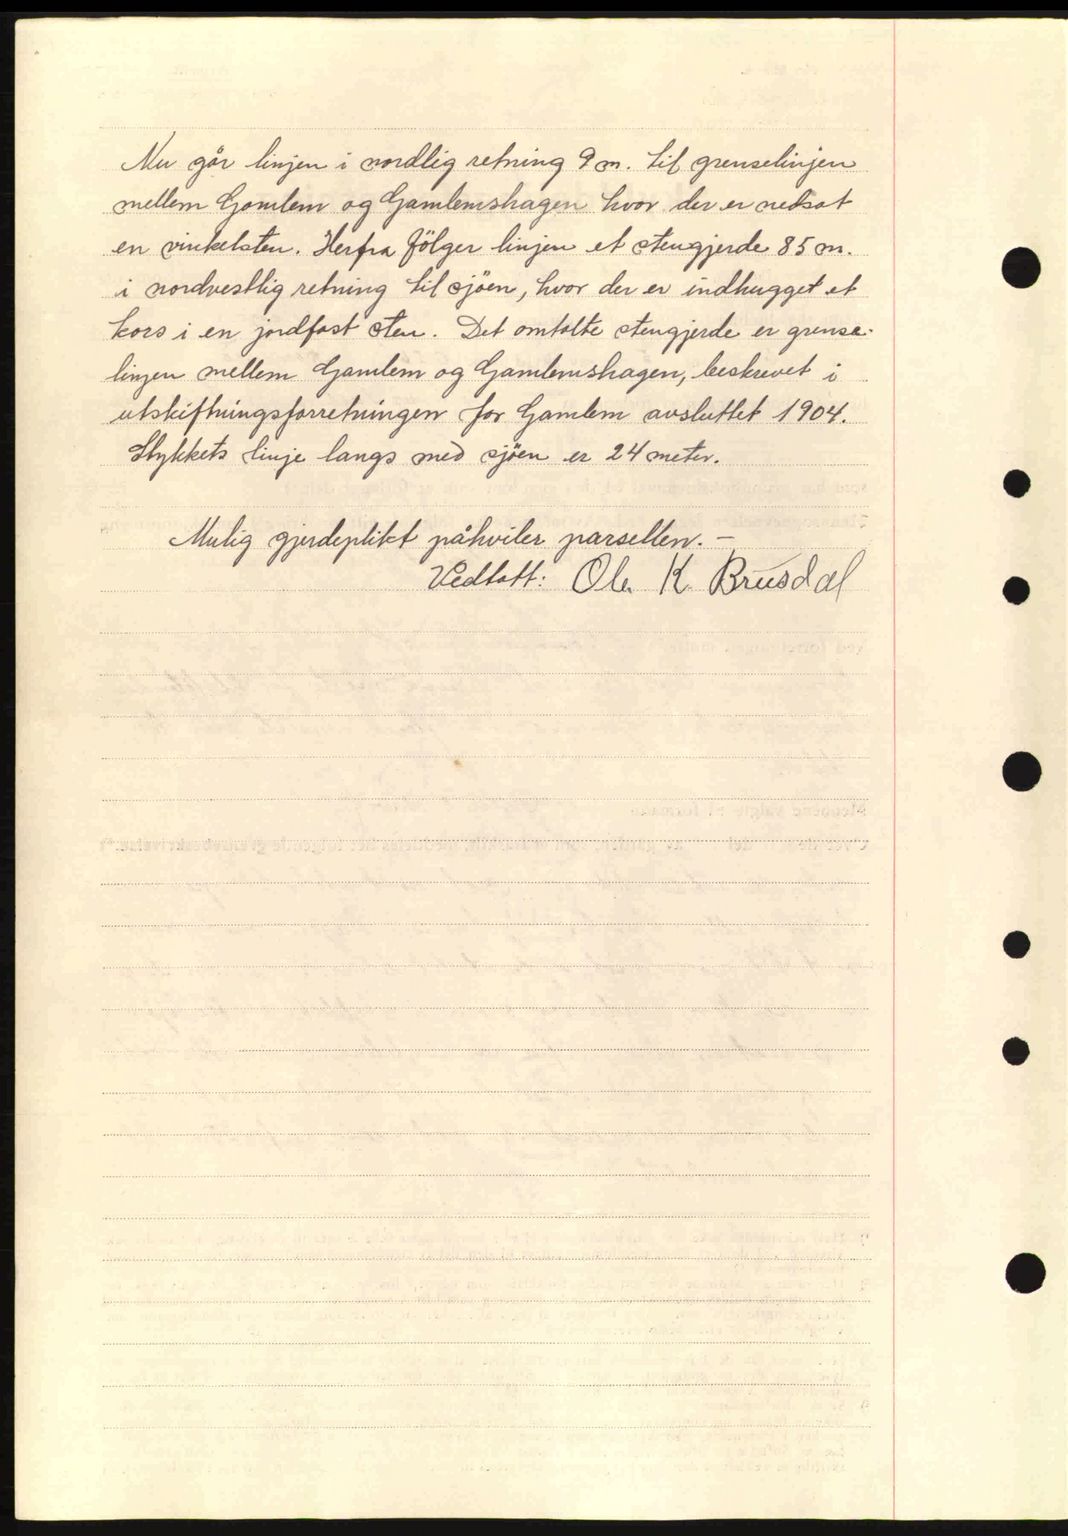 Nu går linjen i nordlig retning 9 m. til grenselinjen
mellem Gamlem og Gamlemshagen hvor der er nedsat
en vinkelsten. Herfra følger linjen et stengjerde 85 m.
i nordvestlig retning til sjøen, hvor der er indhugget et
kors i en jordfast sten. Det omtalte stengjerde er grense-
linjen mellem Gamlem og Gamlemshagen, beskrevet i
utskiftningsforretningen for Gamlem avsluttet 1904.
Stykkets linje langs med sjøen er 24 meter.
Mulig gjerdeplikt påhviler parsellen. —
Vedtatt: Ole K Brusdal